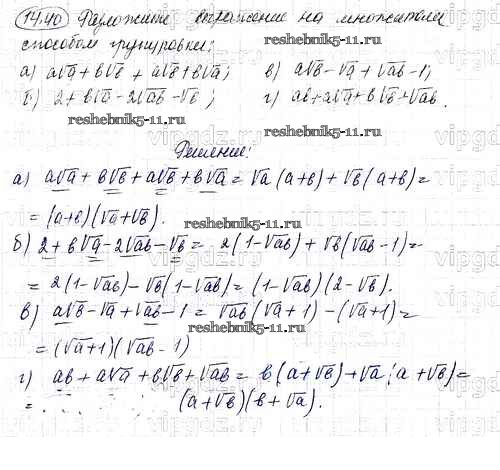 14.40 Разложите выражение на множители
способом группировки:
reshebnik5-11.ru
а) a√a + b√b + a√b + b√a; в) a√b - √a + √ab - 1;
б) 2 + b√a - 2√ab - √b; г) ab + a√a + b√b + √ab.
reshebnik5-11.ru reshebnik5-11.ru
Решение:
а) a√a + b√b + a√b + b√a = √a (a+b) + √b (a+b) =
= (a+b)(√a + √b). reshebnik5-11.ru
б) 2 + b√a - 2√ab - √b = 2(1-√ab) + √b(√ab - 1) =
= 2(1-√ab) - √b(1-√ab) = (1-√ab)(2-√b).
в) a√b - √a + √ab - 1 = √ab(√a + 1) - (√a + 1) =
reshebnik5-11.ru
= (√a + 1)(√ab - 1)
г) ab + a√a + b√b + √ab = b(a+√b) + √a(a+√b) =
= (a+√b)(b+√a).